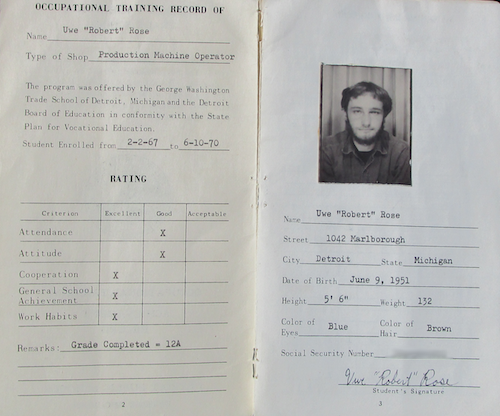 OCCUPATIONAL TRAINING RECORD OF
Name Uwe "Robert" Rose
Type of Shop Production Machine Operator
The program was offered by the George Washington
Trade School of Detroit, Michigan and the Detroit
Board of Education in conformity with the State
Plan for Vocational Education.
Student Enrolled from 2-2-67 to 6-10-70
RATING
Criterion Excellent Good Acceptable
Attendance X
Attitude X
Cooperation X
General School
Achievement X
Work Habits X
Remarks: Grade Completed = 12A
2
Name Uwe "Robert" Rose
Street 1042 Marlborough
City Detroit State Michigan
Date of Birth June 9, 1951
Height 5' 6" Weight 132
Color of
Eyes Blue
Color of
Hair Brown
Social Security Number
Uwe "Robert" Rose
Student's Signature
3